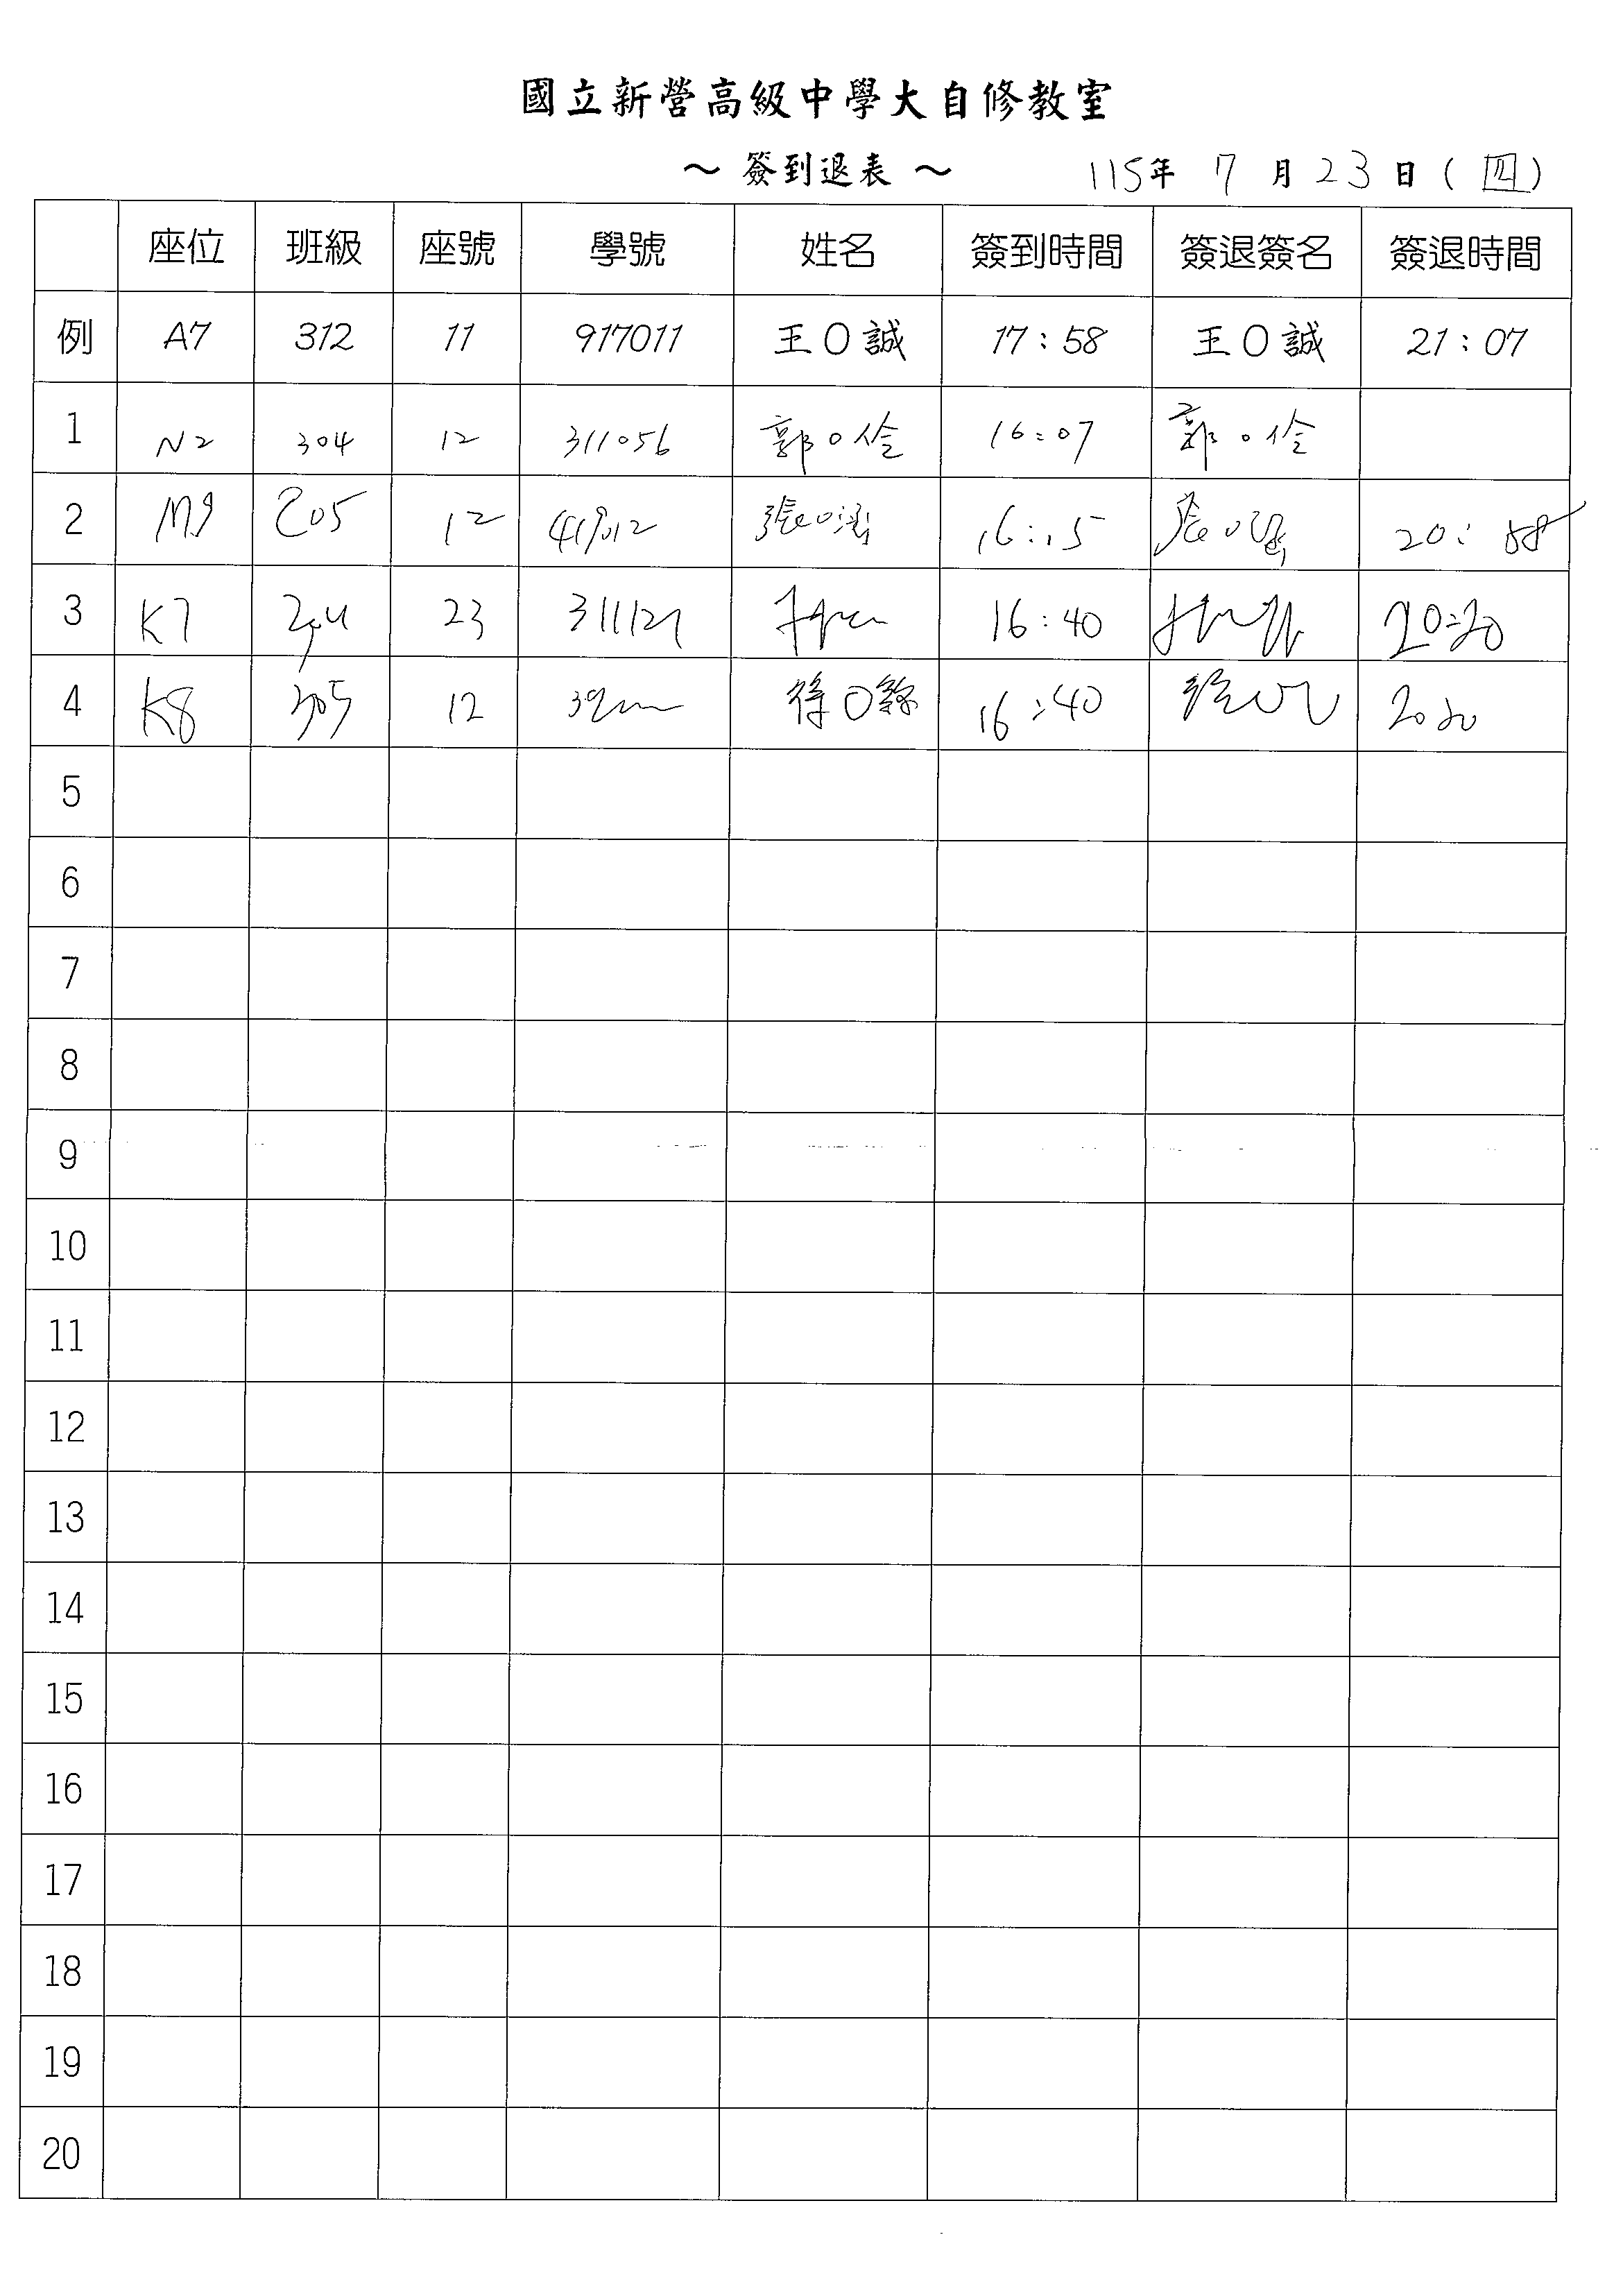 國立新營高級中學大自修教室
～ 簽到退表 ～ 115年 7 月 23 日 ( 四 )
座位 班級 座號 學號 姓名 簽到時間 簽退簽名 簽退時間
例 A7 312 11 917011 王O誠 17:58 王O誠 21:07
1 N2 304 12 311056 郭O倫 16:07 郭O倫
2 M9 205 12 419012 張O 16:15 張O 20:58
3 K7 23 311127 16:40 20:20
4 K8 305 12 徐O 16:40 2020
5
6
7
8
9
10
11
12
13
14
15
16
17
18
19
20